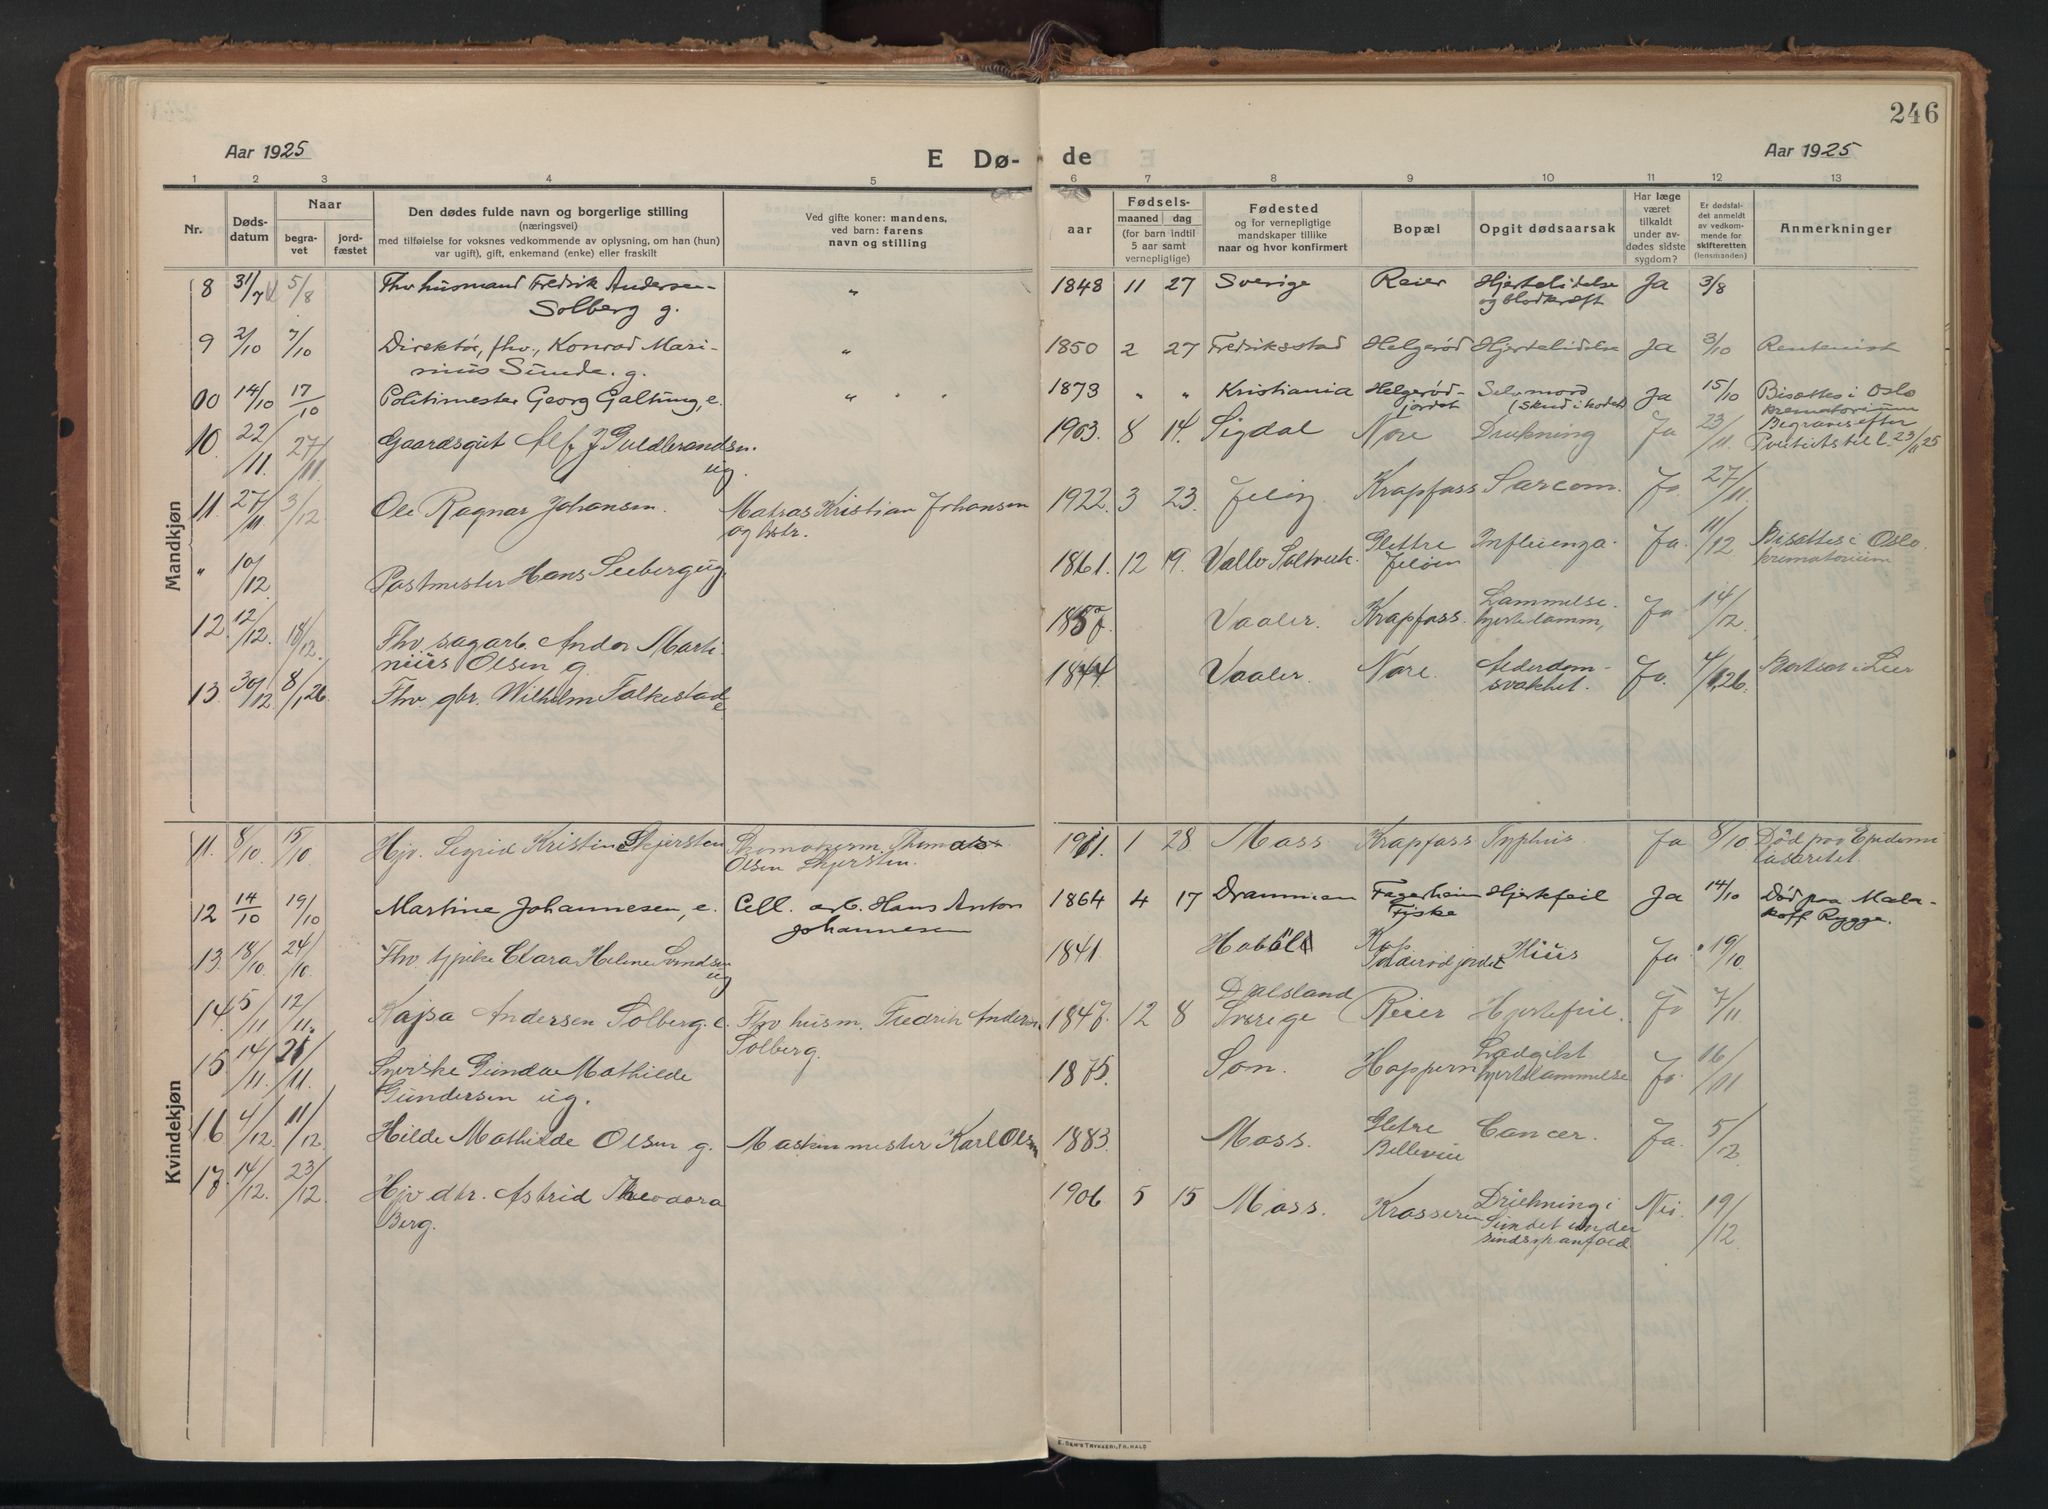 246
Aar 1925
E Dø- de
Aar 1925
1 2 3 4 5 6 7 8 9 10 11 12 13
Nr.
Døds-
datum
Naar
begra-
vet
jord-
fæstet
Den dødes fulde navn og borgerlige stilling
(næringsvei)
med tilføielse for voksnes vedkommende av oplysning, om han (hun)
var ugift), gift, enkemand (enke) eller fraskilt
Ved gifte koner: mandens,
ved barn: farens
navn og stilling
aar
Fødsels-
maaned dag
(for barn indtil
5 aar samt
vernepligtige)
Fødested
og for vernepligtige
mandskaper tillike
naar og hvor konfirmert
Bopæl
Opgit dødsaarsak
Har læge
været
tilkaldt
under av-
dødes sidste
sygdom?
Er dødsfal-
det anmeldt
av vedkom-
mende for
skifteretten
(lensmanden)
Anmerkninger
Mandkjøn
8 31/7 5/8 Fhv husmand Fredrik Andersen " 1848 11 27 Sverige Reier Hjertelidelse Ja 3/8
Solberg g. og blodkræft
9 2/10 7/10 Direktør, fhv., Konrad Mari- " 1850 2 27 Fredriksstad Helgerød Hjertelidelse Ja 3/10 Rentenist
nius Sunde. g.
00 14/10 17/10 Politimester Georg Galtung, e. " " " 1873 " " Kristiania Helgerød- Selvmord Ja 15/10 Bisattes i Oslo
jordet (Skud i hodet) krematorium
10. 22/11 27/11 Gaardsgut Alf J Guldbrandsn. 1903. 8 14. Sigdal Nore Drukning Ja 23/11. Begraves efter
ug Politiets till. 23/11 25
11. 27/11 3/12 Ole Ragnar Johansen. Matros Kristian Johansen 1922. 3 23. Jeløy Krapfoss Sarcom. Ja. 27/11.
og hstr.
" 10/12. Postmester Hans Seeberg ug. 1861. 12 19. Vallø Saltverk. Glettre Influenza. Ja. 11/12 Bisattes i Oslo.
Jeløen krematorium
12. 12/12. 18/12. Fhv. sagarb. Andor Marti- 1857. Vaaler. Krapfoss. Lammelse. Ja 14/12.
nius Olsen g. hjertelamm,
13. 30/12 8/1 26. Fhv. gbr. Wilhelm Falkestad 1844. Vaaler. Nore. Alderdom- Ja. 4/1 26. Bortsat i Lier
e svakhet.
Kvindekjøn
11. 8/10. 15/10 Hjv. Sigrid Kristine Skjersten Thomas 1901 1 28 Moss. Krapfoss Typhus. Ja 8/10 Død paa Epidemi
Olsen Skjersten. lasaretet.
12 14/10 19/10 Martine Johannesen, e. Cell. arb. Hans Anton 1864 4 17 Drammen Fagerheim Hjertefeil Ja 14/10 Død paa Mala-
Johannesen Fiske koff Rygge.
13. 18/10. 24/10. Fhv tjpike Clara Helene Svendsen 1841. Hobøl Kap Ja 19/10
ug
14. 5/11 12/11. Kajsa Andersen Solberg. e. Fhv husm. Fredrik Andersen 1847. 12 8 Dalsland Reier Hjertefeil. Ja 7/11
Solberg. Sverige
15. 14/11. 21/11. Syerske Gunda Mathilde 1875. Son. Hoppern Ja. 16/11
Gundersen ug. hjertelammelse
16 4/12 11/12 Hilde Mathilde Olsen g. Maskinmester Karl Olsen 1883. Moss. Gletre Cancer. Ja. 5/12
Bellevue
17. 14/12. 23/12 Hjv. dtr. Astrid Theodora 1906 5 15 Moss. Krosseren Drukning i Nei. 19/12
Berg. Sundet under
sindsyk anfald.
E. SEM'S TRYKKERI, FR.HALD